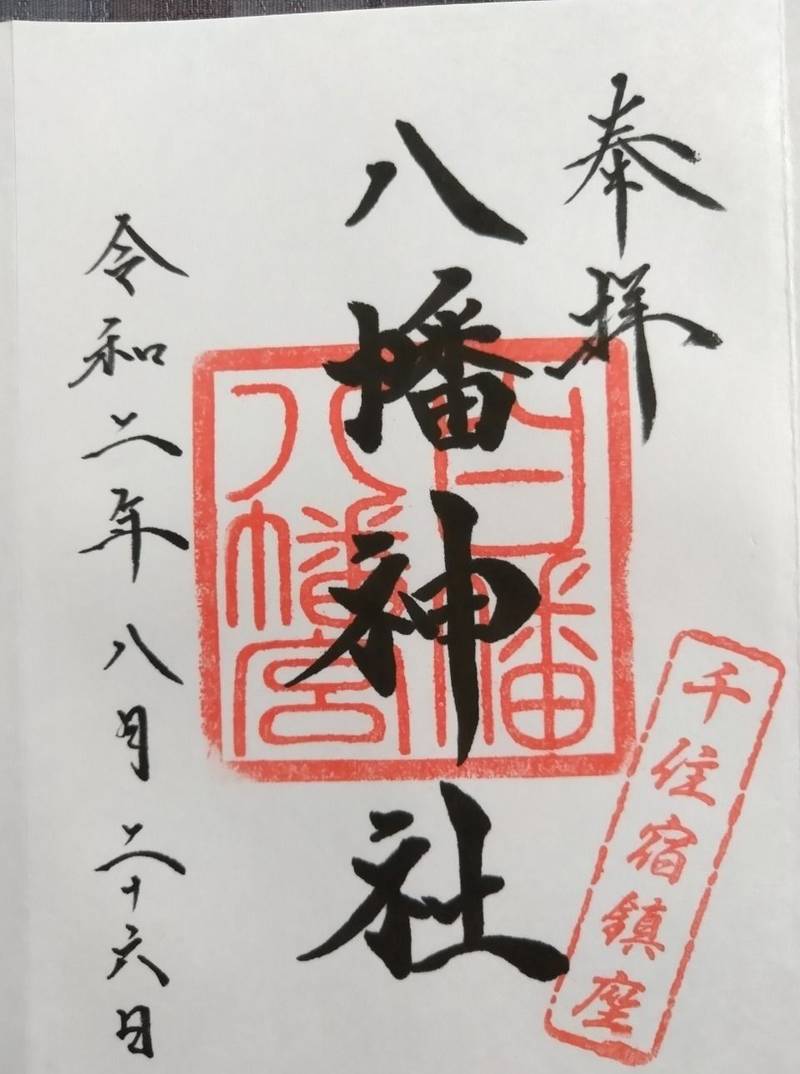 奉拝
八幡神社
令和二年八月二十六日
白幡
八幡宮
千住宿鎮座